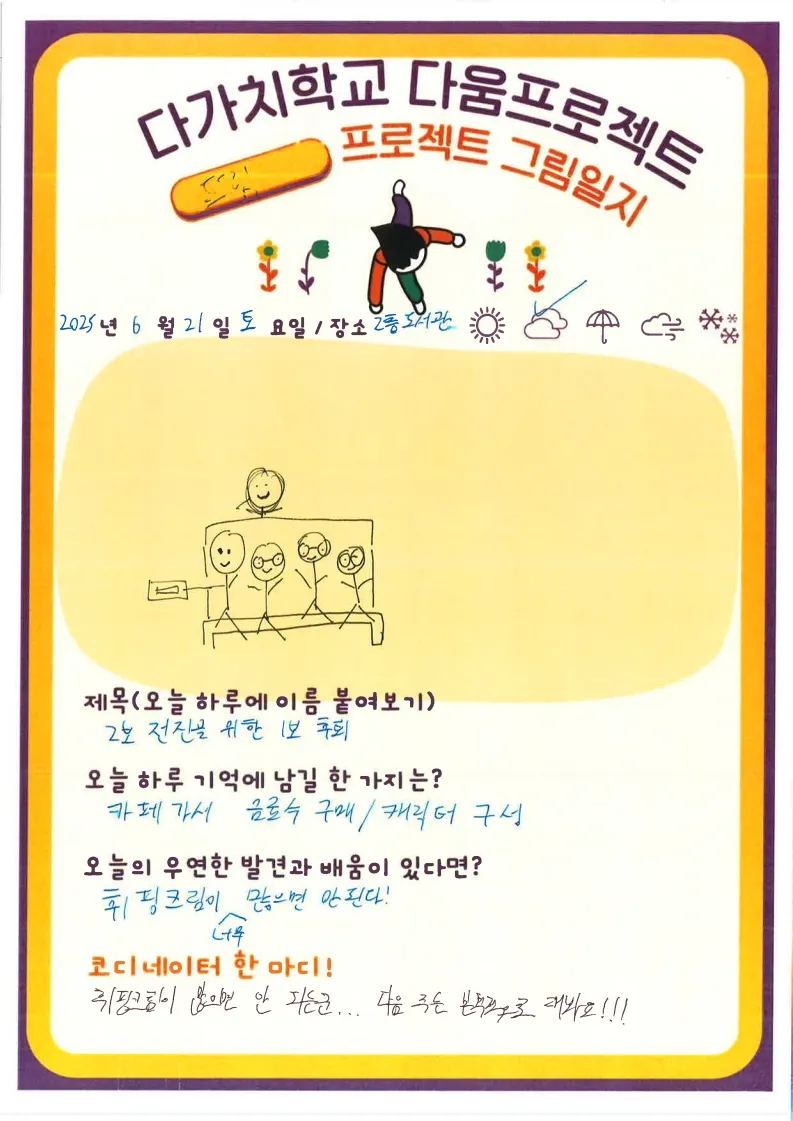 다가치학교 다움프로젝트
프로젝트 그림일지
2025년 6월 21일 토요일 / 장소 2층 도서관
제목(오늘 하루에 이름 붙여보기)
2보 전진을 위한 1보 후퇴
오늘 하루 기억에 남길 한 가지는?
카페 가서 음료수 구매 / 캐릭터 구성
오늘의 우연한 발견과 배움이 있다면?
휘핑크림이 많으면 안된다!
너무
코디네이터 한 마디!
휘핑크림이 많으면 안 되는군... 다음 주는 본격적으로 해봐요!!!